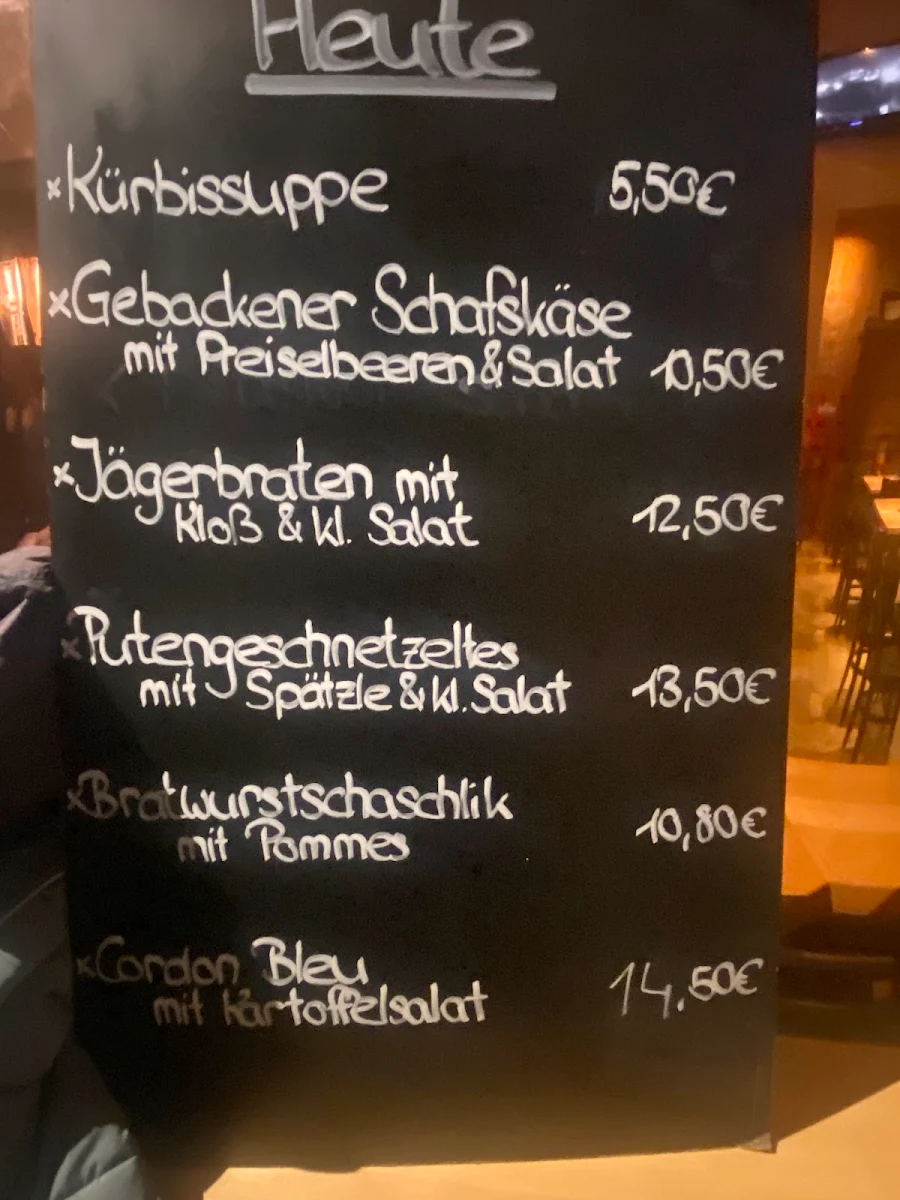 Heute
×Kürbissuppe 5,50€
×Gebackener Schafskäse
mit Preiselbeeren & Salat 10,50€
×Jägerbraten mit
Kloß & kl. Salat 12,50€
×Putengeschnetzeltes
mit Spätzle & kl. Salat 13,50€
×Bratwurstschaschlik
mit Pommes 10,80€
×Cordon Bleu
mit Kartoffelsalat 14,50€